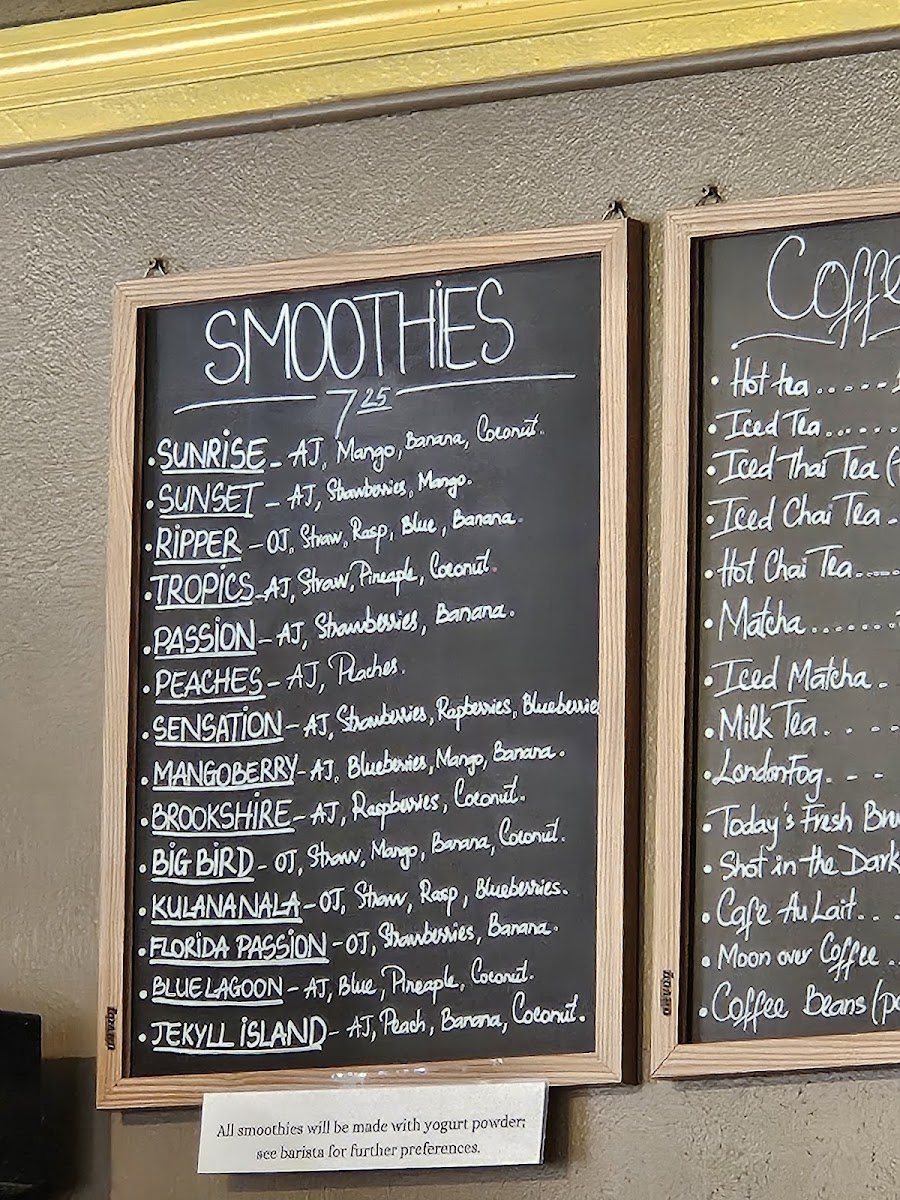 SMOOTHIES
7.25
• SUNRISE - AJ, Mango, Banana, Coconut.
• SUNSET - AJ, Strawberries, Mango.
• RIPPER - OJ, Straw, Rasp, Blue, Banana.
• TROPICS - AJ, Straw, Pineaple, Coconut.
• PASSION - AJ, Strawberries, Banana.
• PEACHES - AJ, Peaches.
• SENSATION - AJ, Strawberries, Rapberries, Blueberries
• MANGOBERRY - AJ, Blueberries, Mango, Banana.
• BROOKSHIRE - AJ, Raspberries, Coconut.
• BIG BIRD - OJ, Straw, Mango, Banana, Coconut.
• KULANA NALA - OJ, Straw, Rasp, Blueberries.
• FLORIDA PASSION - OJ, Strawberries, Banana.
• BLUE LAGOON - AJ, Blue, Pineaple, Coconut.
• JEKYLL ISLAND - AJ, Peach, Banana, Coconut.
All smoothies will be made with yogurt powder;
see barista for further preferences.
Coffe
• Hot tea.....
• Iced Tea......
• Iced Thai Tea (
• Iced Chai Tea.
• Hot Chai Tea....
• Matcha.......
• Iced Matcha.
• Milk Tea....
• London Fog...
• Today's Fresh
• Shot in the Dark
• Cafe Au Lait...
• Moon over Coffee..
• Coffee Beans (